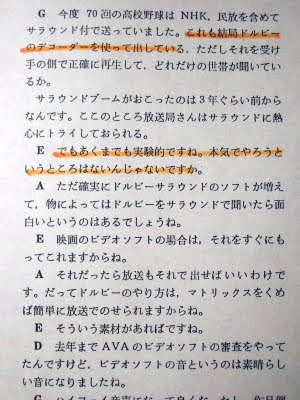 G 今度 70回の高校野球は NHK, 民放を含めて
サラウンド付で送っていました。これも結局ドルビー
のデコーダーを使って出している，ただしそれを受け
手の側で正確に再生して，どれだけの世帯が聞いている
か。
サラウンドブームがおこったのは3年ぐらい前から
なんです。ここのところ放送局さんはサラウンドに熱
心にトライしておられる。
E でもあくまでも実験的ですね。本気でやろうと
いうところはないんじゃないですか。
A ただ確実にドルビーサラウンドのソフトが増え
て，物によってはドルビーサラウンドで聞いたら面
白いというのはあるでしょうね。
E 映画のビデオソフトの場合は，それをすぐにも
ってこれますからね。
A それだったら放送もそれで出せばいいわけで
す。だってドルビーのやり方は，マトリックスをくめ
ば簡単に放送でのせられますからね。
E そういう素材があればですね。
D 去年まで AVA のビデオソフトの審査をやって
たんですけど，ビデオソフトの音というのは素晴らし
い音になりましたね。